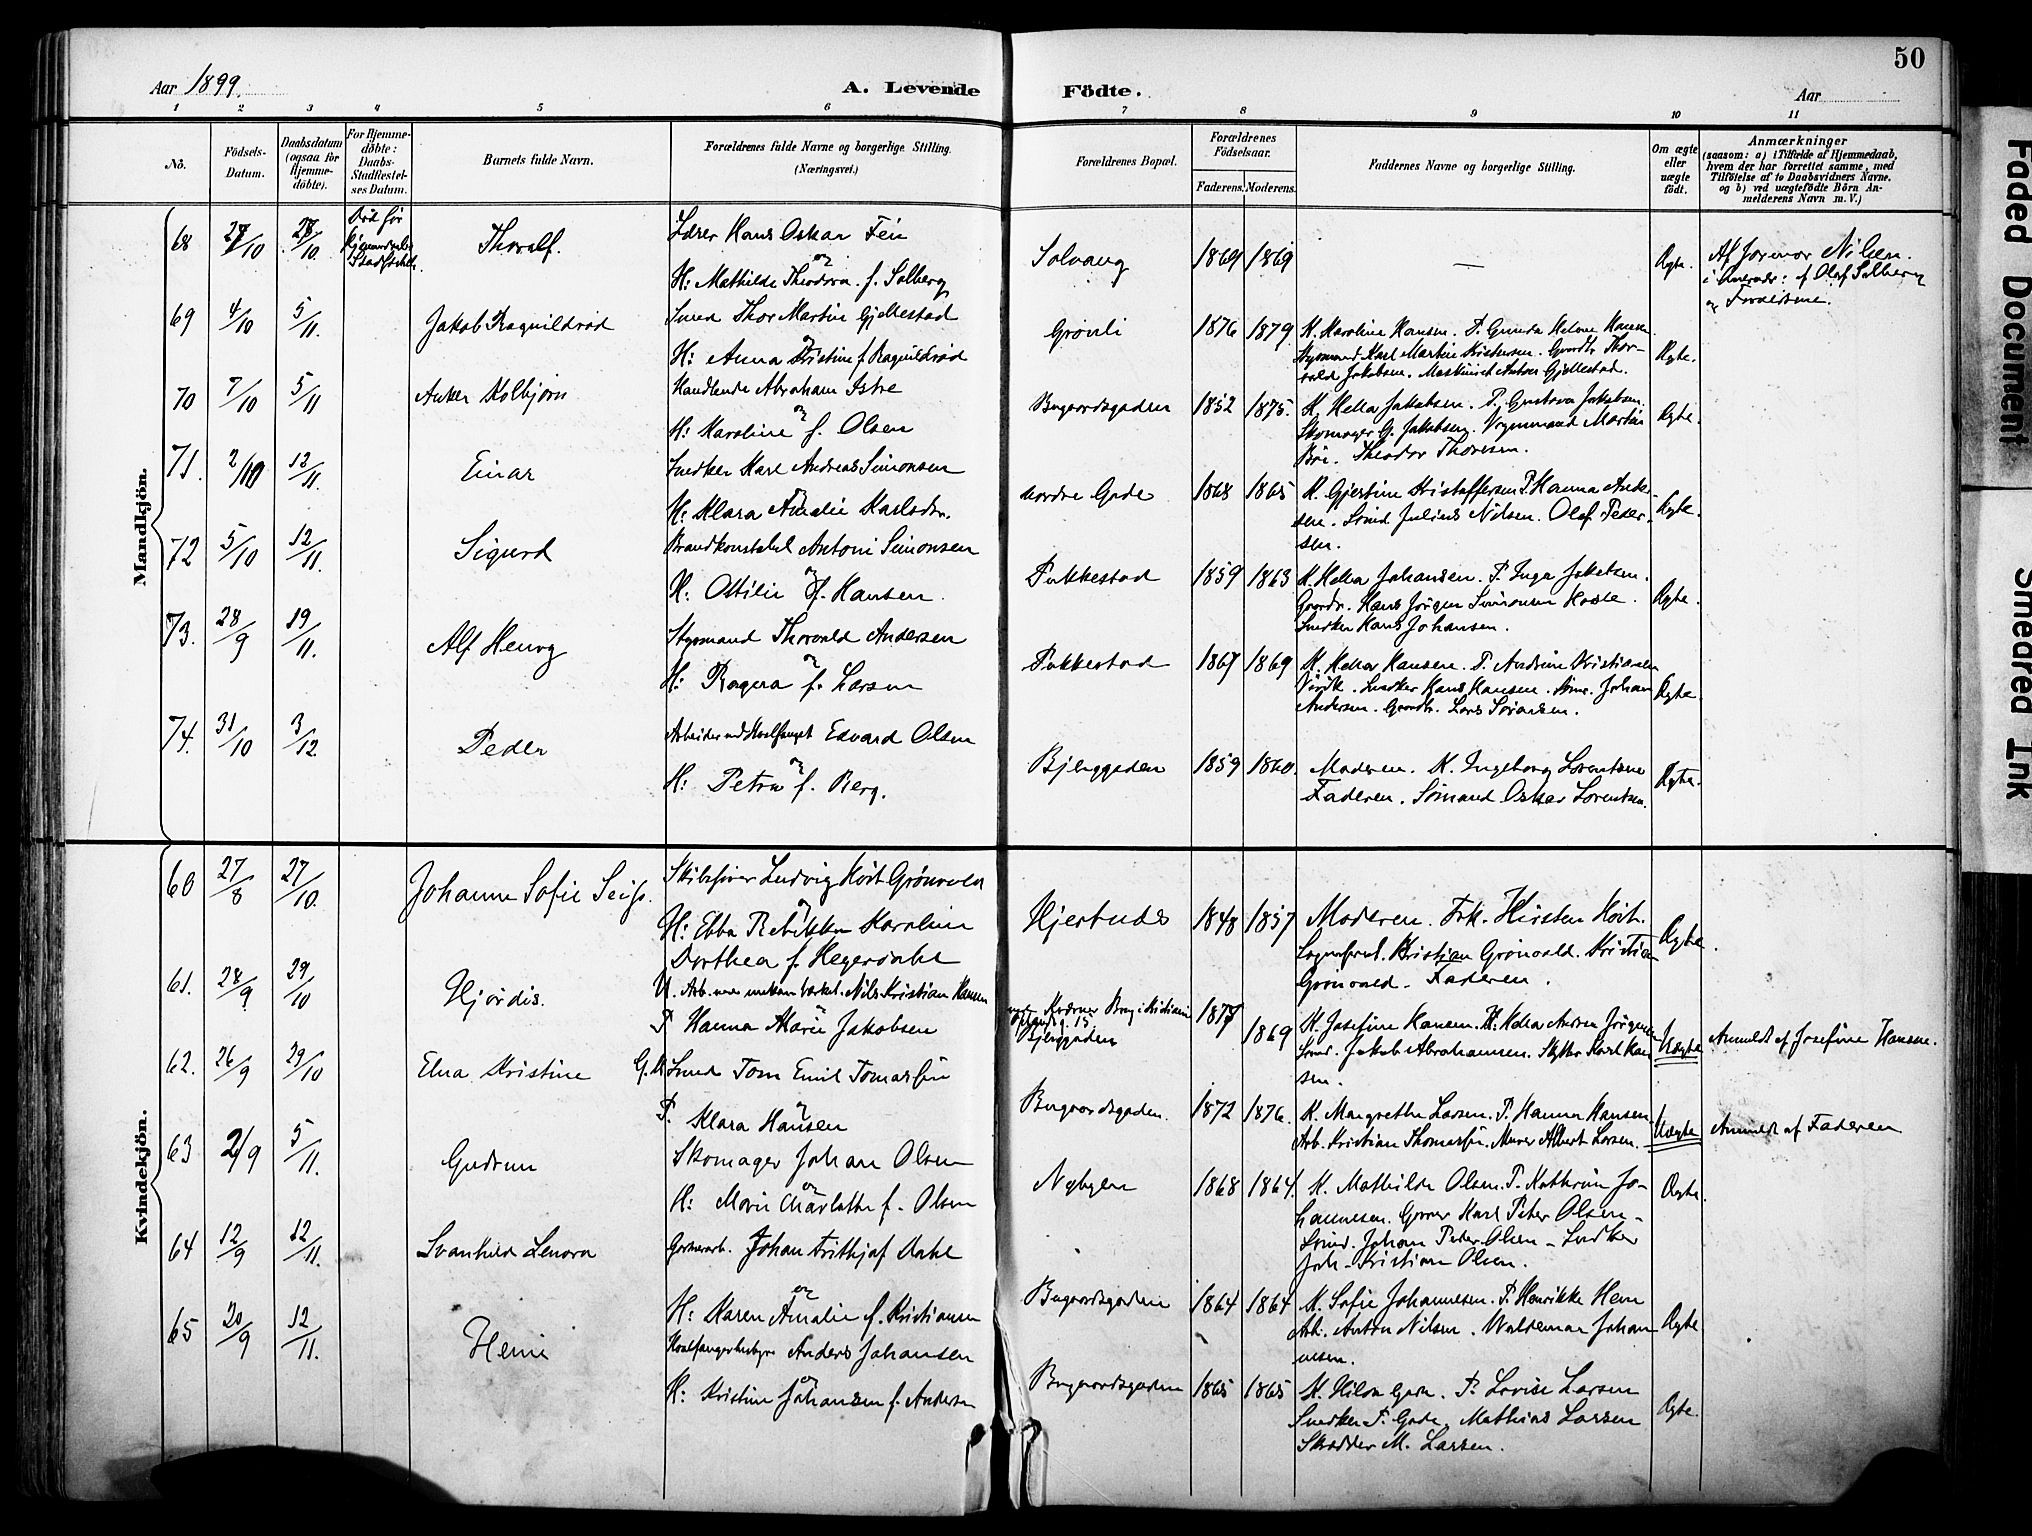 50
Aar 1899.
A. Levende Födte.
Aar
1 2 3 4 5 6 7 8 9 10 11
No.
Födsels-Datum.
Daabsdatum (ogsaa for Hjemme-döbte).
For Hjemme-döbte: Daabs-Stadfæstel-ses Datum.
Barnets fulde Navn.
Forældrenes fulde Navne og borgerlige Stilling.
(Næringsvei.)
Forældrenes Bopæl.
Forældrenes Födselsaar.
Faderens. Moderens.
Faddernes Navne og borgerlige Stilling.
Om ægte eller uægte födt.
Anmærkninger
(saasom: a) i Tilfælde af Hjemmedaab,
hvem der har forrettet samme, med
Tilföielse af to Daabsvidners Navne.
og b) ved uægtefödte Börn An-
melderens Navn m. V.)
Mandkjön.
68 27/10 28/10 Död før Thoralf.
Lærer Hans Oskar Fén
og
H: Mathilde Theodora f. Solberg
Solvang 1869 1869 — Ægte.
Af Jormor Nilsen.
af Olaf Solberg
og Forældrene.
69 4/10 5/11. Jakob Ragnildrød
Smed Thor Martin Gjellestad
og
H: Anna Kristine f. Ragnildrød
Grønli 1876 1879.
K. Karoline Hansen. P. Gunda Helene Hansen.
Styrmand Karl Martin Kristensen. Gaardbr. Thor-
vald Jakobsen. Maskinist Anton Gjellestad.
Ægte.
70 7/10 5/11 Anker Kolbjørn
Handlende Abraham Istre
og
H: Karoline f. Olsen
Bugaardsgaden 1852 1875.
K. Hella Jakobsen. P. Gustava Jakobsen.
Skomager G. Jakobsen. Vognmand Martin
Bøe. Theodor Thoresen.
Ægte.
71. 2/10 12/11. Einar
Snedker Karl Andreas Simonsen
og
H: Klara Amalie Karlsdtr.
Nordre Gade 1868 1865
K. Gjertine Kristoffersen P. Hanna Ander-
sen. Smed Julius Nilsen. Olaf Peder-
sen.
Ægte.
72 5/10 12/11. Sigurd
Brandkonstabel Antoni Simonsen
og
H: Ottilie f. Hansen.
Pukkestad 1859 1863
K. Hella Johansen. P. Inga Jakobsen.
Gaardbr. Hans Jörgen Simonsen Hasle.
Snedker Hans Johansen.
Ægte.
73. 28/9 19/11. Alf Henry
Styrmand Thorvald Andersen
og
H: Ragna f. Larsen
Pukkestad 1867 1869
K. Hella Hansen. P. Andrine Kristiansen
Virik. Snedker Hans Hansen. Sömd. Johan
Andersen. Gaardbr. Lars Sörensen.
Ægte.
74. 31/10 3/12. Peder
Arbeider ved Hvalfanget Edvard Olsen
og
H: Petra f. Berg.
Bjerggaden 1859 1860.
Moderen. K. Ingeborg Lorentsen
Faderen. Sömand Oskar Lorentsen.
Ægte.
Kvindekjön.
60 27/8 27/10. Johanne Sofie
Skibsfører Ludvig Kört Grönvold
og
H: Ebba Rebekka Karoline
Dorthea f. Hegerdahl
Hjertnæs 1848 1857
Moderen. Frk. Kirsten Kört.
Kristian Grönvold. Kristian
Grönvold. Faderen.
Ægte.
61. 28/9 29/10 Hjördis.
U. Arb. Nils Kristian Hansen
og
P. Hanna Marie Jakobsen
Bjerggaden 1877 1869
K. Josefine Hansen. P. Hella Andrea Jörgensen
Sömd. Jakob Abrahamsen. Skytter Karl Han-
sen.
Uægte
Anmeldt af Josefine Hansen.
62. 26/9 29/10 Elna Kristine
G. M. Smed Tom Emil Tomassen
og
P. Klara Hansen
Bugaardsgaden. 1872 1876.
K. Margrethe Larsen. P. Hanna Hansen
Arb. Kristian Thomassen. Murer Albert Larsen.
Uægte
Anmeldt af Faderen
63 2/9 5/11. Gudrun
Skomager Johan Olsen
og
H: Marie Charlotte f. Olsen
Nybyen 1868 1864.
K. Mathilde Olsen. P. Kathrine Jo-
hannesen. Garver Karl Peter Olsen.
Sömd. Johan Peter Olsen – Snedker
Joh. Kristian Olsen.
Ægte.
64 12/9 12/11. Svanhild Lenora
Garverarb. Johan Frithjof Dahl
og
H: Karen Amalie f. Kristiansen
Bugaardsgaden 1864 1864
K. Sofie Johannesen. P. Henrikke Hem
Arb. Anton Nilsen. Waldemar Johan
nesen.
Ægte.
65 20/9 12/11. Heine
Hvalfangerbestyrer Anders Johansen
og
H: Kristine Johansen f. Andersen
Bugaardsgaden 1865 1865
K. Hilda Gade. P. Lovise Larsen
Snedker P. Gade. Mathias Larsen
Skrædder M. Larsen.
Ægte.
Faded Document
Smeared Ink